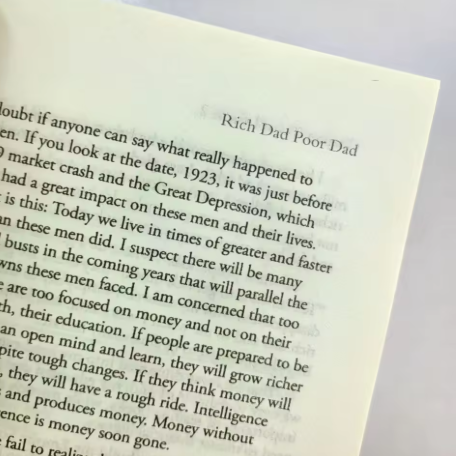 Rich Dad Poor Dad
doubt if anyone can say what really happened to
en. If you look at the date, 1923, it was just before
9 market crash and the Great Depression, which
had a great impact on these men and their lives.
is this: Today we live in times of greater and faster
an these men did. I suspect there will be many
busts in the coming years that will parallel the
wns these men faced. I am concerned that too
e are too focused on money and not on their
th, their education. If people are prepared to be
an open mind and learn, they will grow richer
pite tough changes. If they think money will
, they will have a rough ride. Intelligence
s and produces money. Money without
ence is money soon gone.
fail to